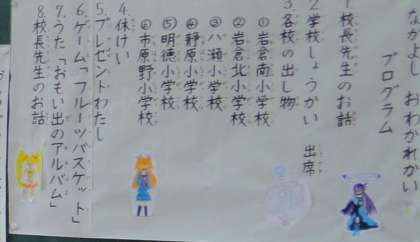 なかよしおわかれかい
プログラム
1.校長先生のお話
2.学校しょうかい 出席
3.各校の出し物
①岩倉南小学校
②岩倉北小学校
③八瀬小学校
④野原小学校
⑤明徳小学校
⑥市原野小学校
4.休けい
5.プレゼントわたし
6.ゲーム「フルーツバスケット」
7.うた「おもい出のアルバム」
8.校長先生のお話